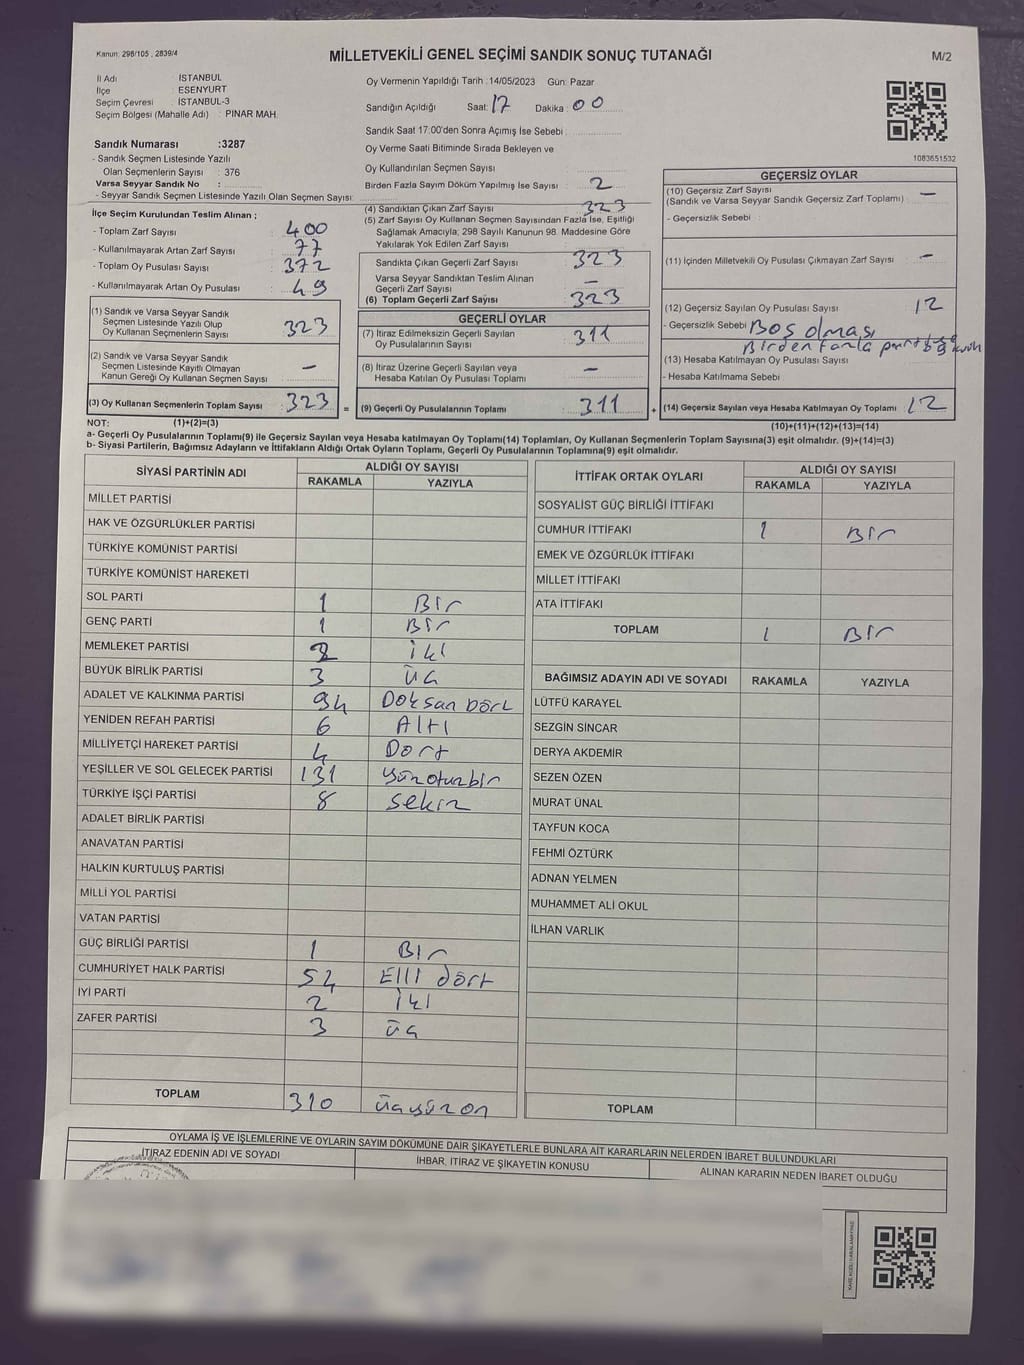 Kanun: 298/105 , 2839/4
MİLLETVEKİLİ GENEL SEÇİMİ SANDIK SONUÇ TUTANAĞI
M/2
İl Adı : İSTANBUL
İlçe : ESENYURT
Seçim Çevresi : İSTANBUL-3
Seçim Bölgesi (Mahalle Adı) : PINAR MAH.
Oy Vermenin Yapıldığı Tarih :14/05/2023 Gün: Pazar
Sandığın Açıldığı Saat: 17 Dakika : 00
Sandık Saat 17:00'den Sonra Açımış İse Sebebi :
Oy Verme Saati Bitiminde Sırada Bekleyen ve
Oy Kullandırılan Seçmen Sayısı
Birden Fazla Sayım Döküm Yapılmış İse Sayısı : 2
1083651532
Sandık Numarası :3287
- Sandık Seçmen Listesinde Yazılı
Olan Seçmenlerin Sayısı : 376
Varsa Seyyar Sandık No :
- Seyyar Sandık Seçmen Listesinde Yazılı Olan Seçmen Sayısı:
İlçe Seçim Kurulundan Teslim Alınan ;
- Toplam Zarf Sayısı : 400
- Kullanılmayarak Artan Zarf Sayısı : 77
- Toplam Oy Pusulası Sayısı : 372
- Kullanılmayarak Artan Oy Pusulası : 49
(1) Sandık ve Varsa Seyyar Sandık
Seçmen Listesinde Yazılı Olup
Oy Kullanan Seçmenlerin Sayısı : 323
(2) Sandık ve Varsa Seyyar Sandık
Seçmen Listesinde Kayıtlı Olmayan
Kanun Gereği Oy Kullanan Seçmen Sayısı : -
(3) Oy Kullanan Seçmenlerin Toplam Sayısı : 323
(4) Sandıktan Çıkan Zarf Sayısı : 323
(5) Zarf Sayısı Oy Kullanan Seçmen Sayısından Fazla İse, Eşitliği
Sağlamak Amacıyla; 298 Sayılı Kanunun 98. Maddesine Göre
Yakılarak Yok Edilen Zarf Sayısı :
Sandıkta Çıkan Geçerli Zarf Sayısı : 323
Varsa Seyyar Sandıktan Teslim Alınan
Geçerli Zarf Sayısı : -
(6) Toplam Geçerli Zarf Sayısı : 323
GEÇERLİ OYLAR
(7) İtiraz Edilmeksizin Geçerli Sayılan
Oy Pusulalarının Sayısı : 311
(8) İtiraz Üzerine Geçerli Sayılan veya
Hesaba Katılan Oy Pusulası Toplamı : -
= (9) Geçerli Oy Pusulalarının Toplamı : 311
GEÇERSİZ OYLAR
(10) Geçersiz Zarf Sayısı
(Sandık ve Varsa Seyyar Sandık Geçersiz Zarf Toplamı) : -
- Geçersizlik Sebebi :
(11) İçinden Milletvekili Oy Pusulası Çıkmayan Zarf Sayısı : -
(12) Geçersiz Sayılan Oy Pusulası Sayısı : 12
- Geçersizlik Sebebi : Boş olması
Birden fazla
(13) Hesaba Katılmayan Oy Pusulası Sayısı
- Hesaba Katılmama Sebebi
+ (14) Geçersiz Sayılan veya Hesaba Katılmayan Oy Toplamı : 12
NOT: (1)+(2)=(3)
(10)+(11)+(12)+(13)=(14)
a- Geçerli Oy Pusulalarının Toplamı(9) ile Geçersiz Sayılan veya Hesaba katılmayan Oy Toplamı(14) Toplamları, Oy Kullanan Seçmenlerin Toplam Sayısına(3) eşit olmalıdır. (9)+(14)=(3)
b- Siyasi Partilerin, Bağımsız Adayların ve İttifakların Aldığı Ortak Oyların Toplamı, Geçerli Oy Pusulalarının Toplamına(9) eşit olmalıdır.
SİYASİ PARTİNİN ADI ALDIĞI OY SAYISI
RAKAMLA YAZIYLA
MİLLET PARTİSİ
HAK VE ÖZGÜRLÜKLER PARTİSİ
TÜRKİYE KOMÜNİST PARTİSİ
TÜRKİYE KOMÜNİST HAREKETİ
SOL PARTİ 1 Bir
GENÇ PARTİ 1 Bir
MEMLEKET PARTİSİ 2 iki
BÜYÜK BİRLİK PARTİSİ 3 üç
ADALET VE KALKINMA PARTİSİ 94 Doksan dört
YENİDEN REFAH PARTİSİ 6 Altı
MİLLİYETÇİ HAREKET PARTİSİ 4 Dört
YEŞİLLER VE SOL GELECEK PARTİSİ 131 yüzotuzbir
TÜRKİYE İŞÇİ PARTİSİ 8 Sekiz
ADALET BİRLİK PARTİSİ
ANAVATAN PARTİSİ
HALKIN KURTULUŞ PARTİSİ
MİLLİ YOL PARTİSİ
VATAN PARTİSİ
GÜÇ BİRLİĞİ PARTİSİ 1 Bir
CUMHURİYET HALK PARTİSİ 54 Elli dört
İYİ PARTİ 2 iki
ZAFER PARTİSİ 3 üç
TOPLAM 310 üçyüzon
İTTİFAK ORTAK OYLARI ALDIĞI OY SAYISI
RAKAMLA YAZIYLA
SOSYALİST GÜÇ BİRLİĞİ İTTİFAKI
CUMHUR İTTİFAKI 1 Bir
EMEK VE ÖZGÜRLÜK İTTİFAKI
MİLLET İTTİFAKI
ATA İTTİFAKI
TOPLAM 1 Bir
BAĞIMSIZ ADAYIN ADI VE SOYADI RAKAMLA YAZIYLA
LÜTFÜ KARAYEL
SEZGİN SİNCAR
DERYA AKDEMİR
SEZEN ÖZEN
MURAT ÜNAL
TAYFUN KOCA
FEHMİ ÖZTÜRK
ADNAN YELMEN
MUHAMMET ALİ OKUL
İLHAN VARLIK
TOPLAM
OYLAMA İŞ VE İŞLEMLERİNE VE OYLARIN SAYIM DÖKÜMÜNE DAİR ŞİKAYETLERLE BUNLARA AİT KARARLARIN NELERDEN İBARET BULUNDUKLARI
İTİRAZ EDENİN ADI VE SOYADI İHBAR, İTİRAZ VE ŞİKAYETİN KONUSU ALINAN KARARIN NEDEN İBARET OLDUĞU
KARE KODU KARALAMAYINIZ